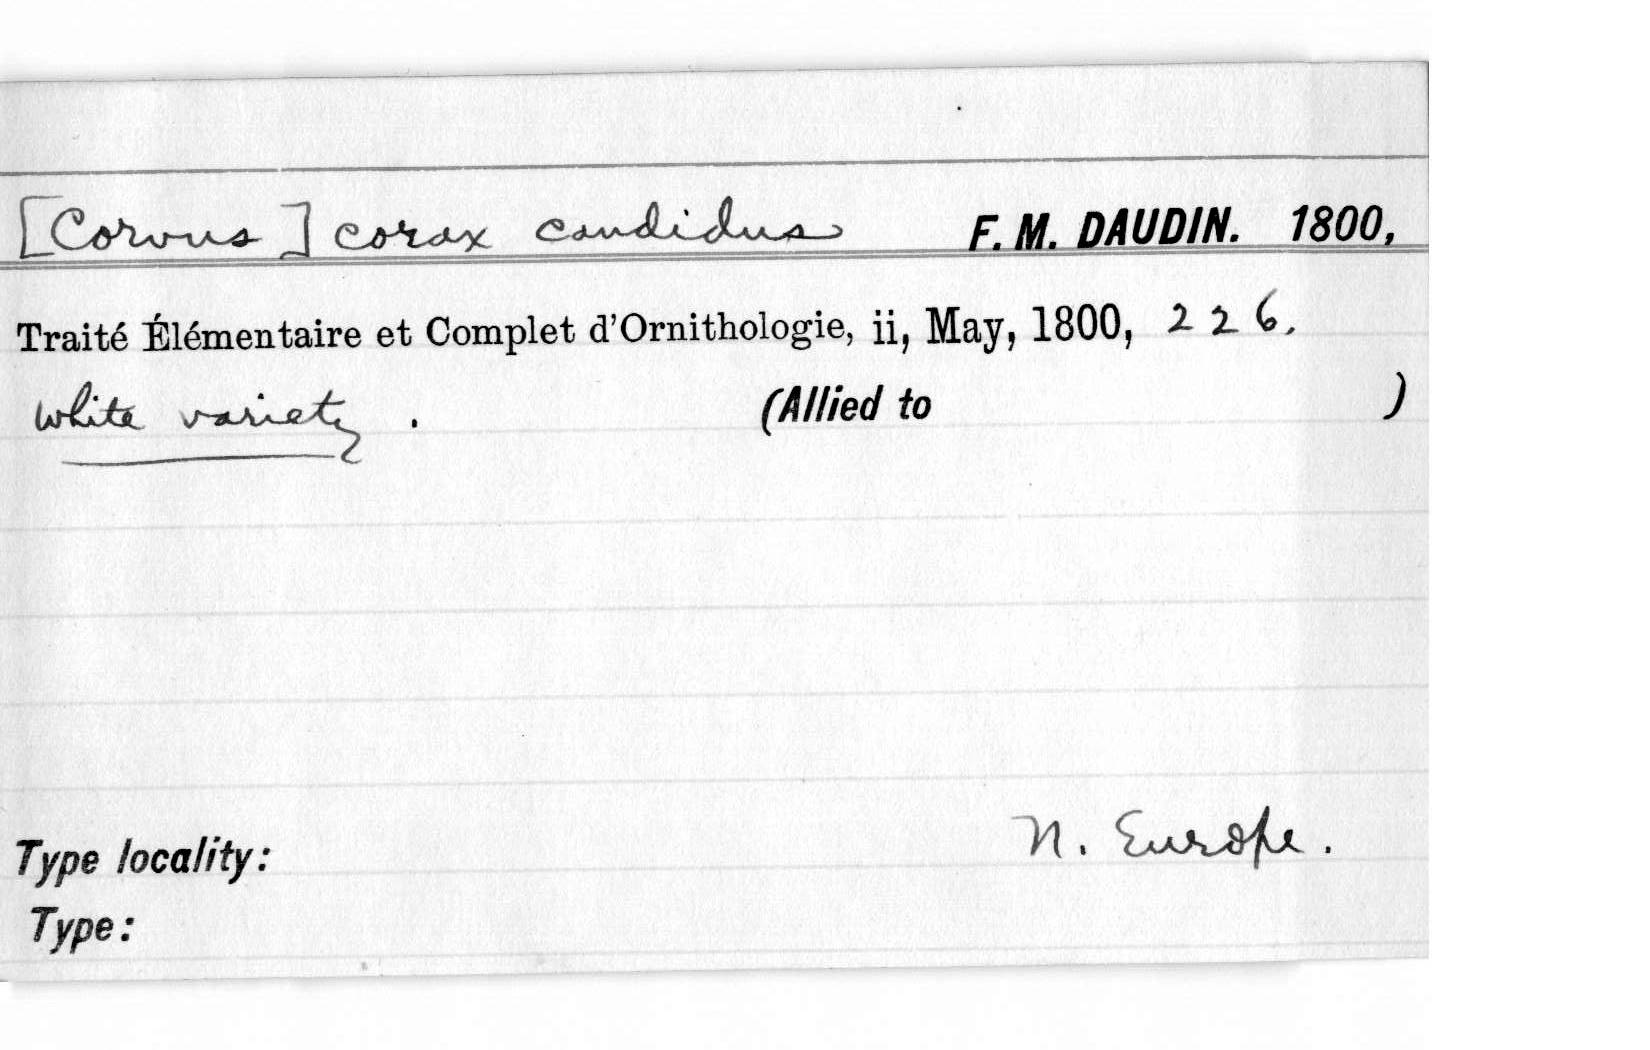 [Corvus] corax candidus F. M. DAUDIN. 1800,
Traité Élémentaire et Complet d'Ornithologie, ii, May, 1800, 226.
white variety. (Allied to )
N. Europe.
Type locality:
Type: